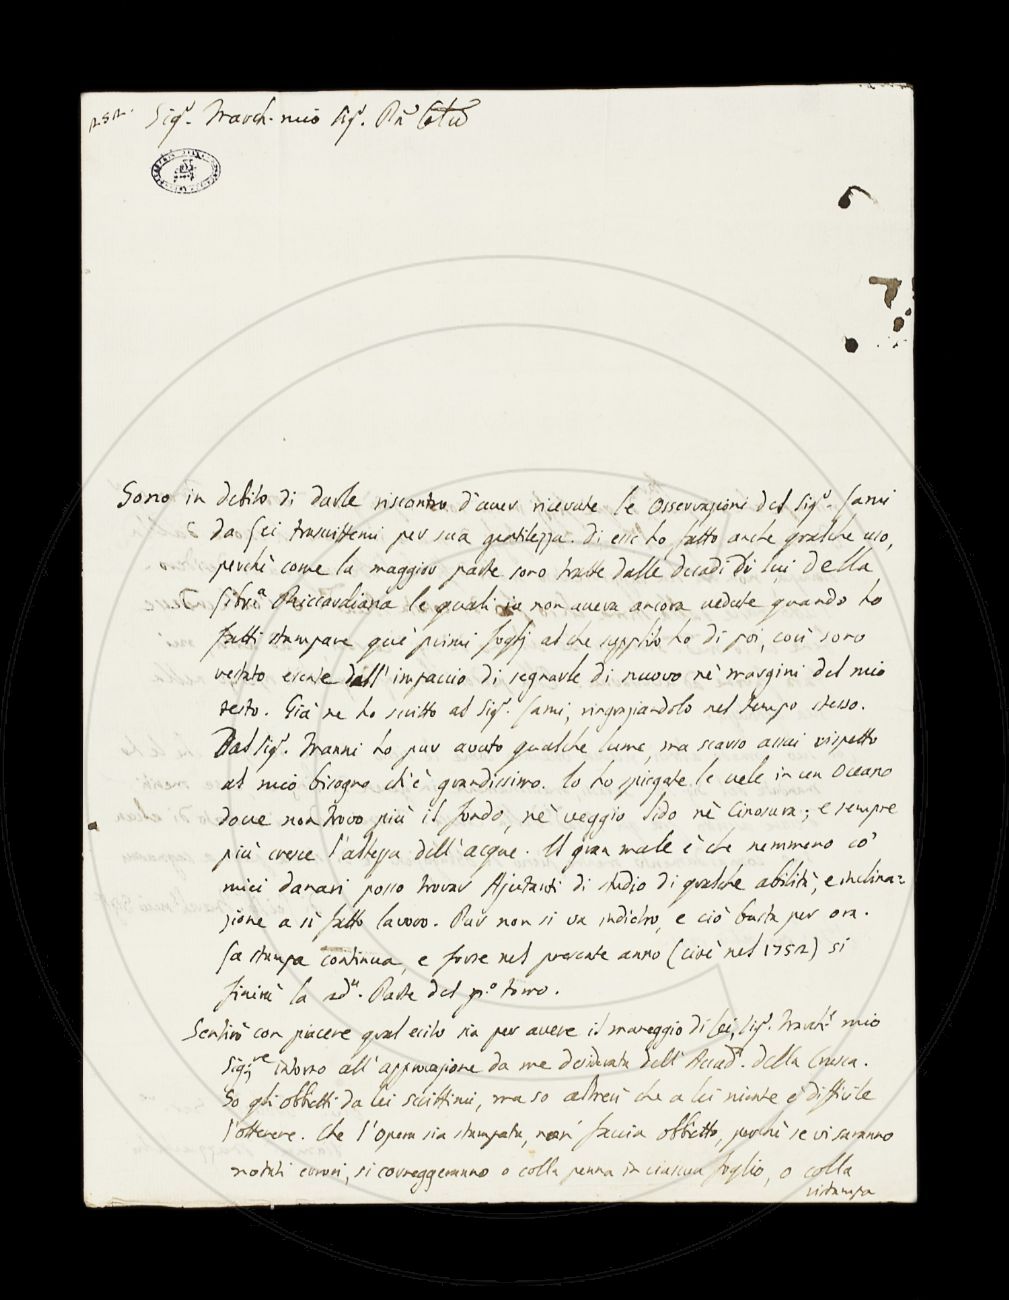 Sig.r March. mio Sig.r
Sono in debito di darle riscontro d'aver ricevute le Osservazioni del Sig.r Lami
da Lei trasmittemi per sua gentilezza. di esse ho fatto anche qualche uso,
perchè come la maggior parte sono tratte dalle decadi di lui della
Libr.a Riccardiana le quali io non aveva ancora vedute quando ho
fatti stampare que' primi foglj al che supplito ho di poi, così sono
restato esente dall' impaccio di segnarle di nuovo ne' margini del mio
testo. Già ne ho scritto al Sig.r Lami, ringraziandolo nel tempo stesso.
Dal Sig.r Manni ho pur avuto qualche lume, ma scarso assai rispetto
al mio bisogno ch'è grandissimo. Io ho spiegate le vele in un Oceano
dove non trovo più il fondo, nè veggio lido nè Cinosura; e sempre
più cresce l'altezza dell' acque. Il gran male è che nemmeno co'
miei danari posso trovar Ajutanti di studio di qualche abilità, e inclina=
zione a sì fatto lavoro. Pur non si va indietro, e ciò basta per ora.
La stampa continua, e forse nel presente anno (cioè nel 1752) si
finirà la 2d.a Parte del p.o tomo.
Sentirò con piacere qual esito sia per avere il maneggio di Lei, Sig.r March.e mio
Sig.re intorno all' approvazione da me desiderata dell' Accad.a della Crusca.
So gli obbietti da lei scrittimi, ma so altresì che a lei niente è difficile
l'ottenere. Che l'Opera sia stampata, non faccia obbietto, perchè se vi saranno
notati errori, si correggeranno o colla penna in ciascun foglio, o colla
ristampa